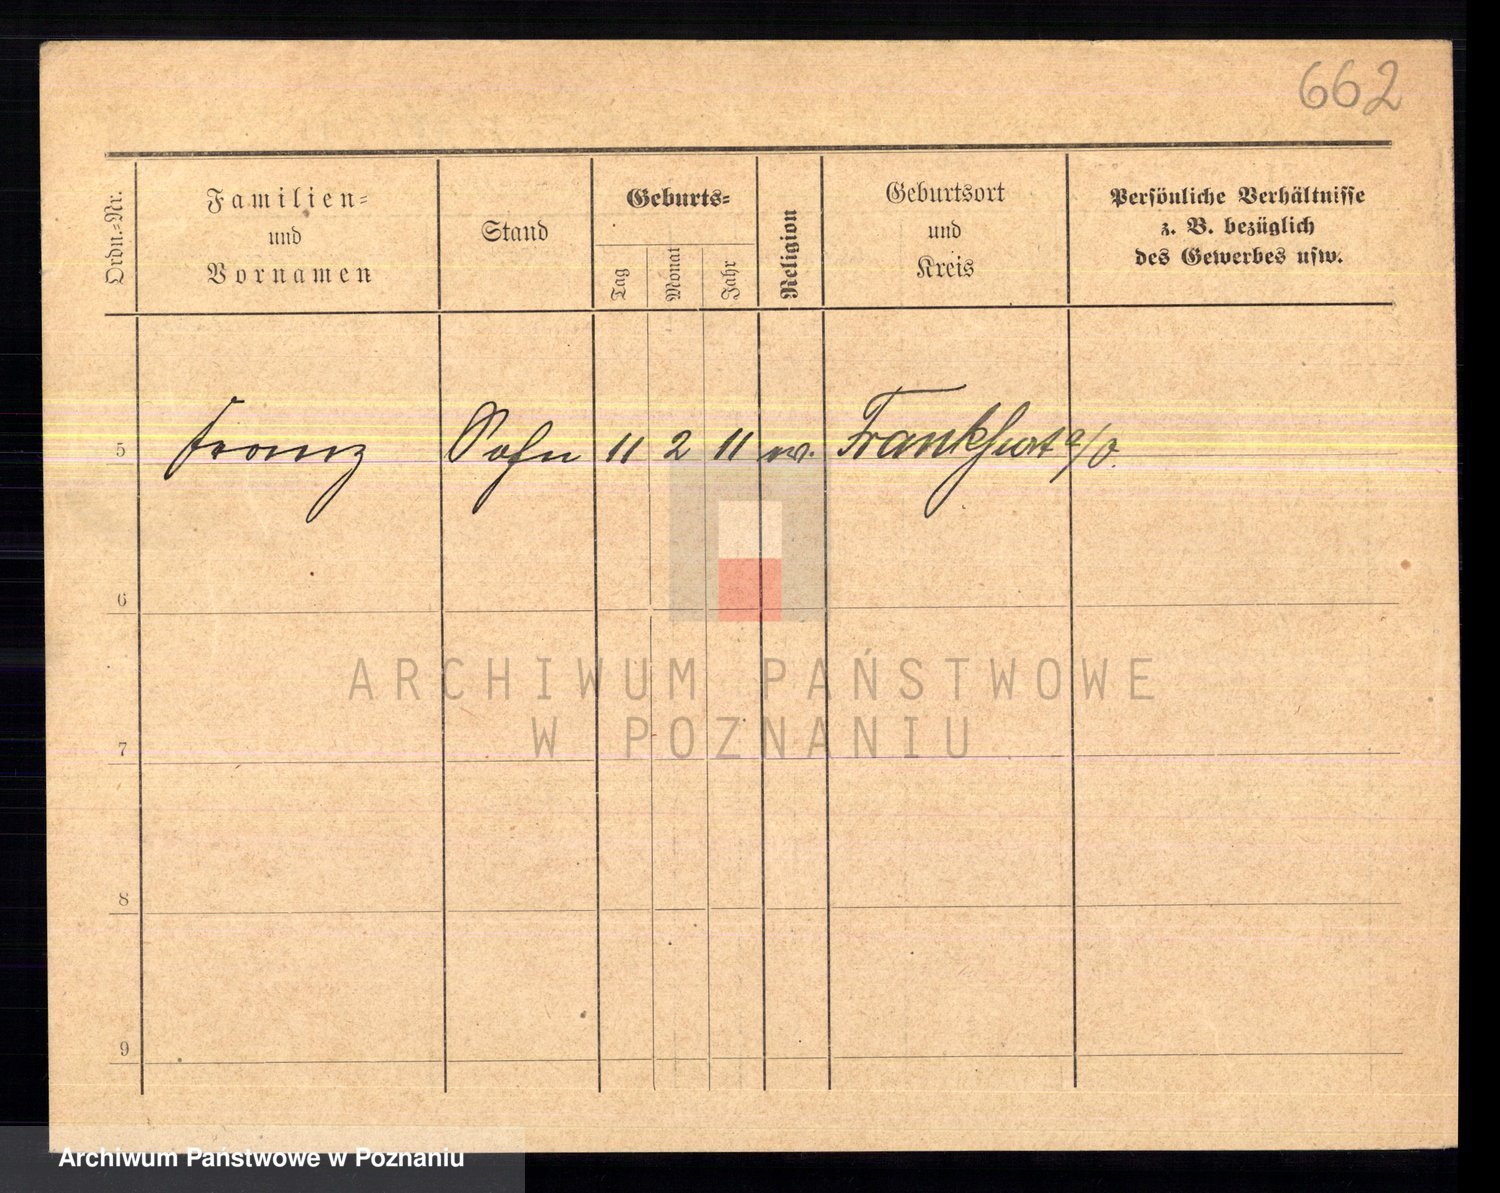 662
Ordn.-Nr.
Familien-
und
Vornamen
Stand
Geburts-
Tag
Monat
Jahr
Religion
Geburtsort
und
Kreis
Persönliche Verhältnisse
z. B. bezüglich
des Gewerbes usw.
5 Franz Sohn 11 2 11 Frankfurt a/O.
6
7
8
9
ARCHIWUM PAŃSTWOWE
W POZNANIU
Archiwum Państwowe w Poznaniu